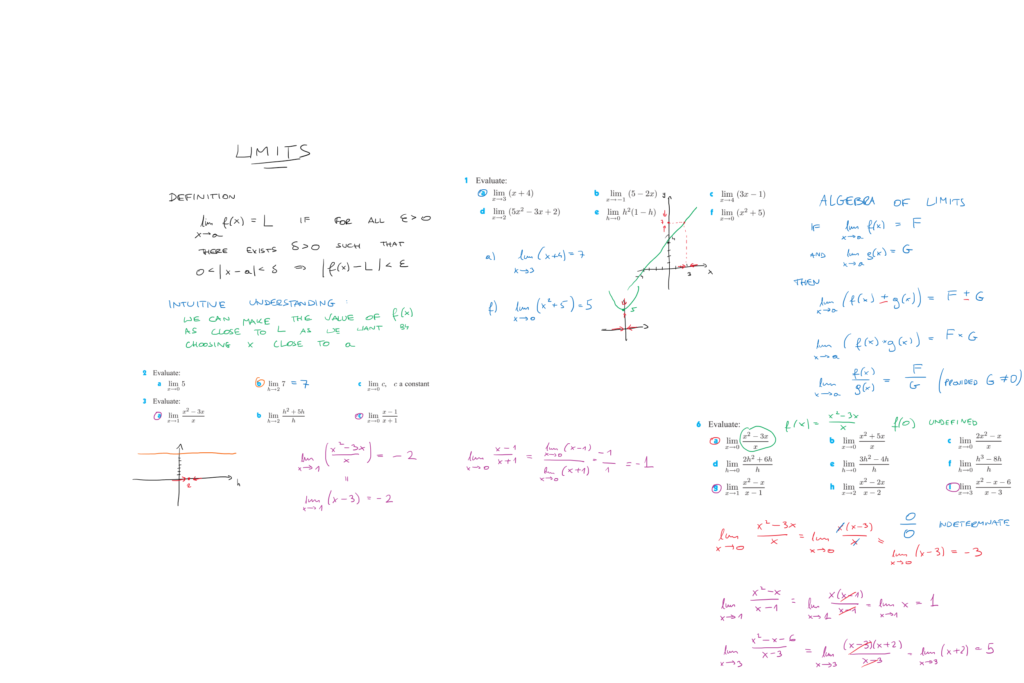 LIMITS
DEFINITION
lim f(x) = L IF FOR ALL ε>0
x→a
THERE EXISTS δ>0 SUCH THAT
0<|x-a|<δ ⇒ |f(x)-L|<ε
INTUITIVE UNDERSTANDING:
WE CAN MAKE THE VALUE OF f(x)
AS CLOSE TO L AS WE WANT BY
CHOOSING x CLOSE TO a
2 Evaluate:
a lim x→0 5
b lim h→2 7 = 7
c lim x→0 c, c a constant
3 Evaluate:
a lim x→1 (x² − 3x)/x
b lim h→2 (h² + 5h)/h
c lim x→0 (x − 1)/(x + 1)
2
h
lim x→1 ((x²-3x)/x) = -2
=
lim x→1 (x-3) = -2
1 Evaluate:
a lim x→3 (x + 4)
b lim x→−1 (5 − 2x)
c lim x→4 (3x − 1)
d lim x→2 (5x² − 3x + 2)
e lim h→0 h²(1 − h)
f lim x→0 (x² + 5)
a) lim x→3 (x+4) = 7
f) lim x→0 (x²+5) = 5
y
7
4
-4
3
x
5
lim x→0 (x-1)/(x+1) = lim x→0 (x-1) / lim x→0 (x+1) = -1/1 = -1
ALGEBRA OF LIMITS
IF lim x→a f(x) = F
AND lim x→a g(x) = G
THEN
lim x→a (f(x) ± g(x)) = F ± G
lim x→a (f(x) × g(x)) = F × G
lim x→a f(x)/g(x) = F/G (PROVIDED G ≠ 0)
f(x) = (x²-3x)/x f(0) UNDEFINED
6 Evaluate:
a lim x→0 (x² − 3x)/x
b lim x→0 (x² + 5x)/x
c lim x→0 (2x² − x)/x
d lim h→0 (2h² + 6h)/h
e lim h→0 (3h² − 4h)/h
f lim h→0 (h³ − 8h)/h
g lim x→1 (x² − x)/(x − 1)
h lim x→2 (x² − 2x)/(x − 2)
i lim x→3 (x² − x − 6)/(x − 3)
0/0 INDETERMINATE
lim x→0 (x²-3x)/x = lim x→0 x(x-3)/x = lim x→0 (x-3) = -3
lim x→1 (x²-x)/(x-1) = lim x→1 x(x-1)/(x-1) = lim x→1 x = 1
lim x→3 (x²-x-6)/(x-3) = lim x→3 (x-3)(x+2)/(x-3) = lim x→3 (x+2) = 5